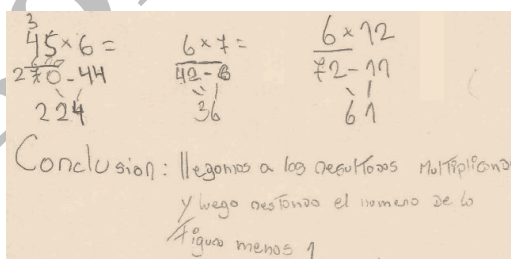 3
45×6= 6×7= 6×12
270-44 42-6 72-11
224 36 61
Conclusion: llegamos a los resultados multiplicando
y luego restando el numero de la
figura menos 1